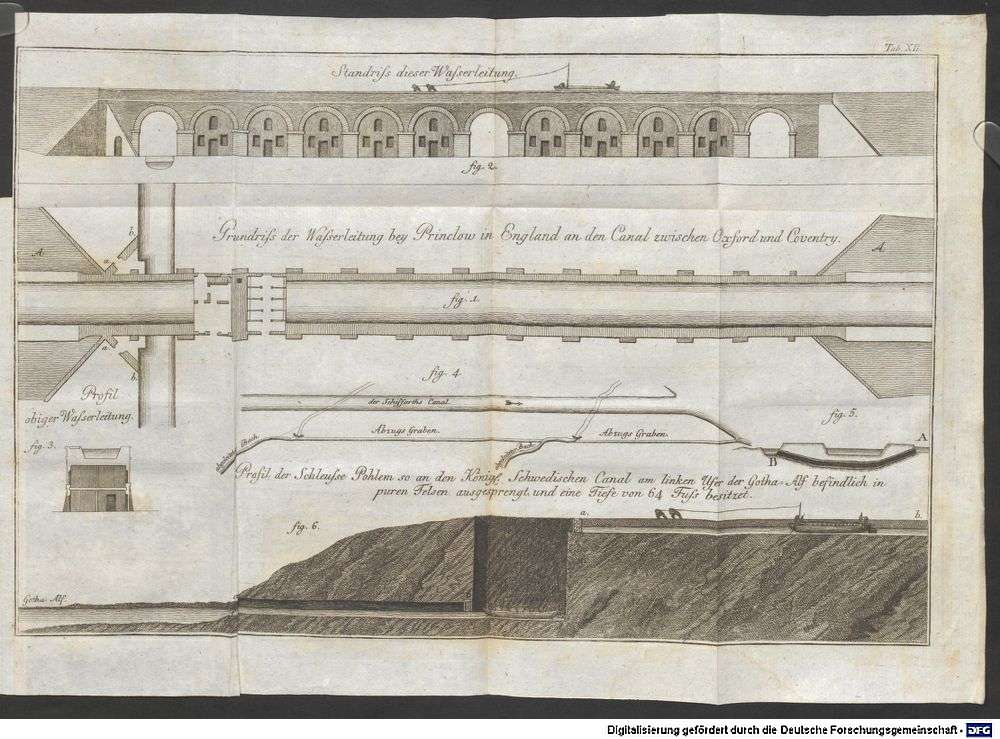 Tab. XII.
Standriſs dieser Waſserleitung.
fig. 2.
Grundriſs der Waſserleitung bey Princlow in England an den Canal zwischen Oxford und Coventry.
A
b.
a.
A
fig. 1.
a.
b.
Profil
obiger Waſserleitung.
fig. 3.
fig. 4
der Schiffarths Canal.
Abzugs Graben.
Abzugs Graben.
Bach.
Bach.
fig. 5.
A
B
Profil der Schleuſse Pohlem so an den Königl. Schwedischen Canal am linken Ufer der Gotha-Alf befindlich in
puren Felsen ausgesprengt, und eine Tiefe von 64 Fuſs besitzet.
fig. 6.
a.
b.
Gotha Alf.
Digitalisierung gefördert durch die Deutsche Forschungsgemeinschaft - DFG